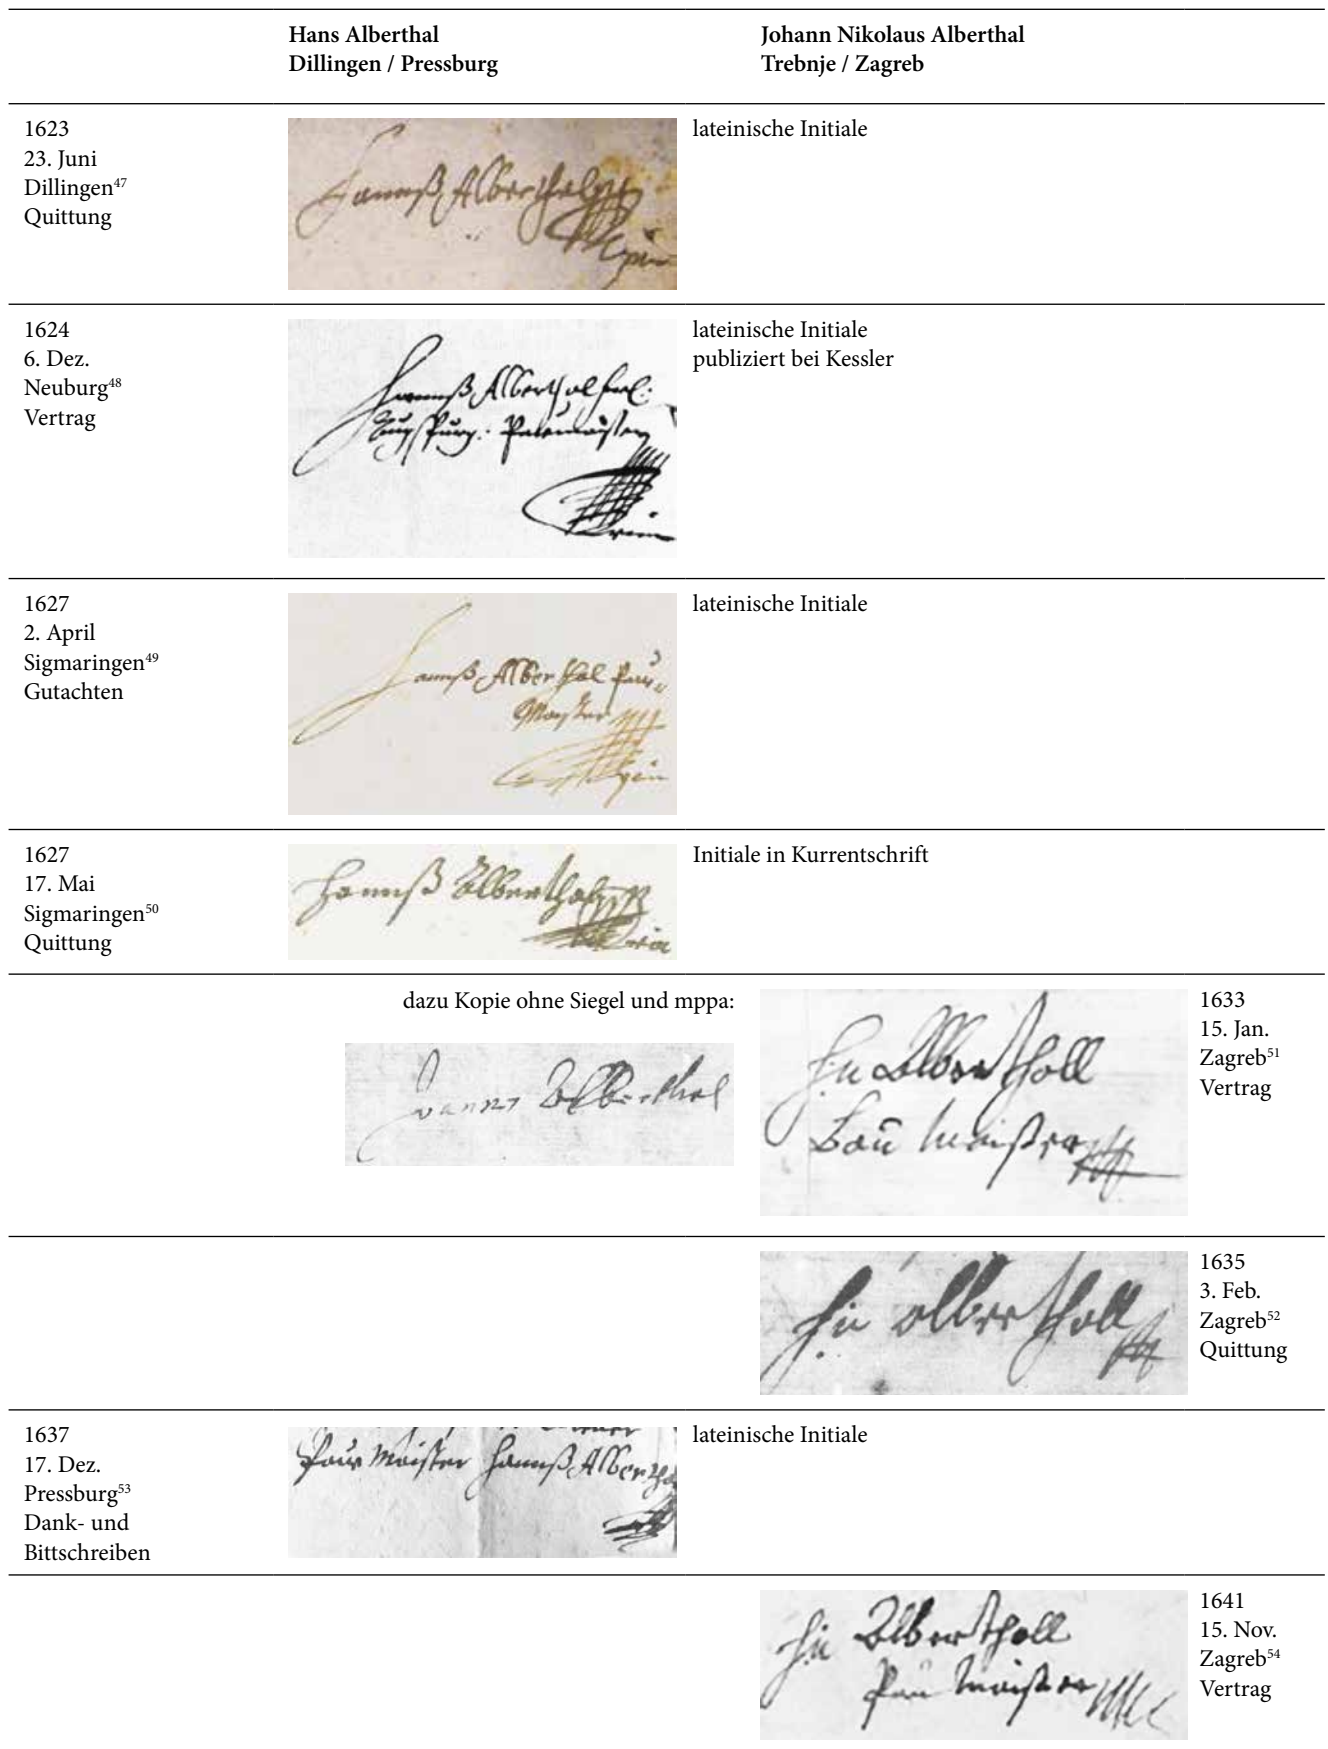 Hans Alberthal
Dillingen / Pressburg
Johann Nikolaus Alberthal
Trebnje / Zagreb
1623
23. Juni
Dillingen47
Quittung
Hannß Alberthal
lateinische Initiale
1624
6. Dez.
Neuburg48
Vertrag
Hannß Alberthal
lateinische Initiale
publiziert bei Kessler
1627
2. April
Sigmaringen49
Gutachten
Hannß Alberthal Paw
Mayster
lateinische Initiale
1627
17. Mai
Sigmaringen50
Quittung
Hannß Alberthal
Initiale in Kurrentschrift
dazu Kopie ohne Siegel und mppa:
Hanns Alberthal
Hn Alberthall
Bau Meister
1633
15. Jan.
Zagreb51
Vertrag
Hn Alberthall
1635
3. Feb.
Zagreb52
Quittung
1637
17. Dez.
Pressburg53
Dank- und
Bittschreiben
Maister Hannß Albertha
lateinische Initiale
Hn Alberthall
Pau Maister
1641
15. Nov.
Zagreb54
Vertrag